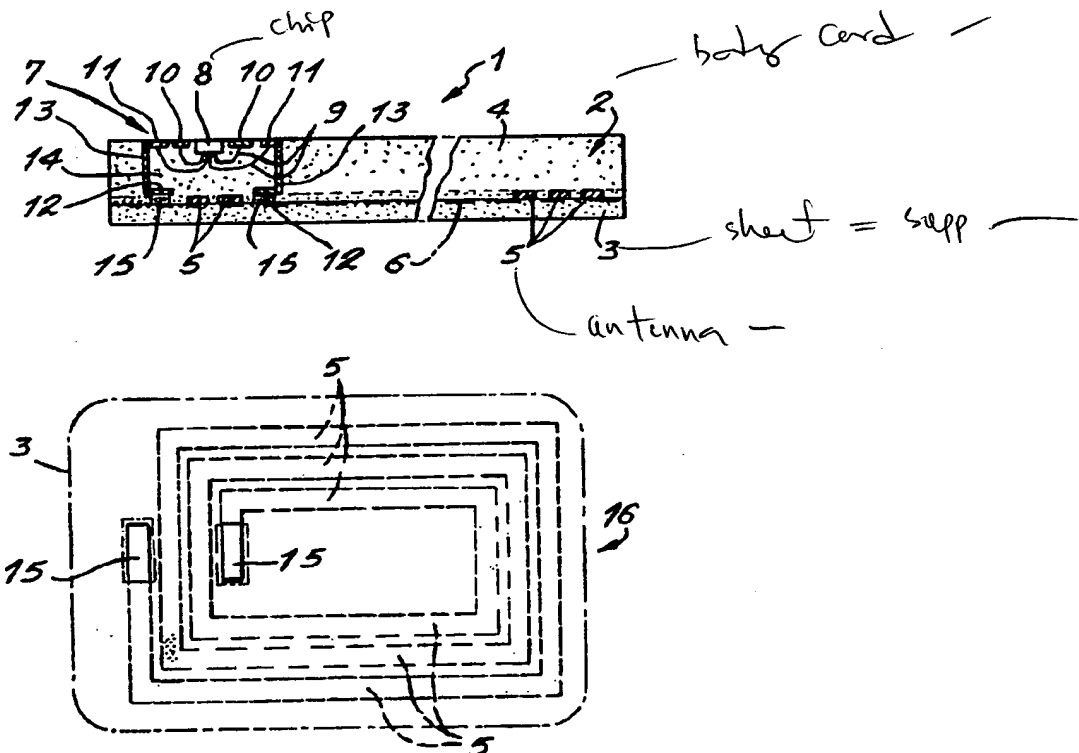 chip
body card
11 10 8 10 11
7
1
13
9 13
4
2
14
12
15 5 15 12
6
5
3
sheet = supp
antenna
5
3
16
15
15
5